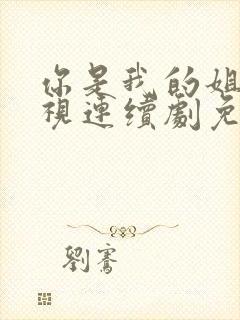 你是我的姐
視連續劇免
劉騫